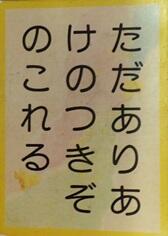 ただありあ
けのつきぞ
のこれる